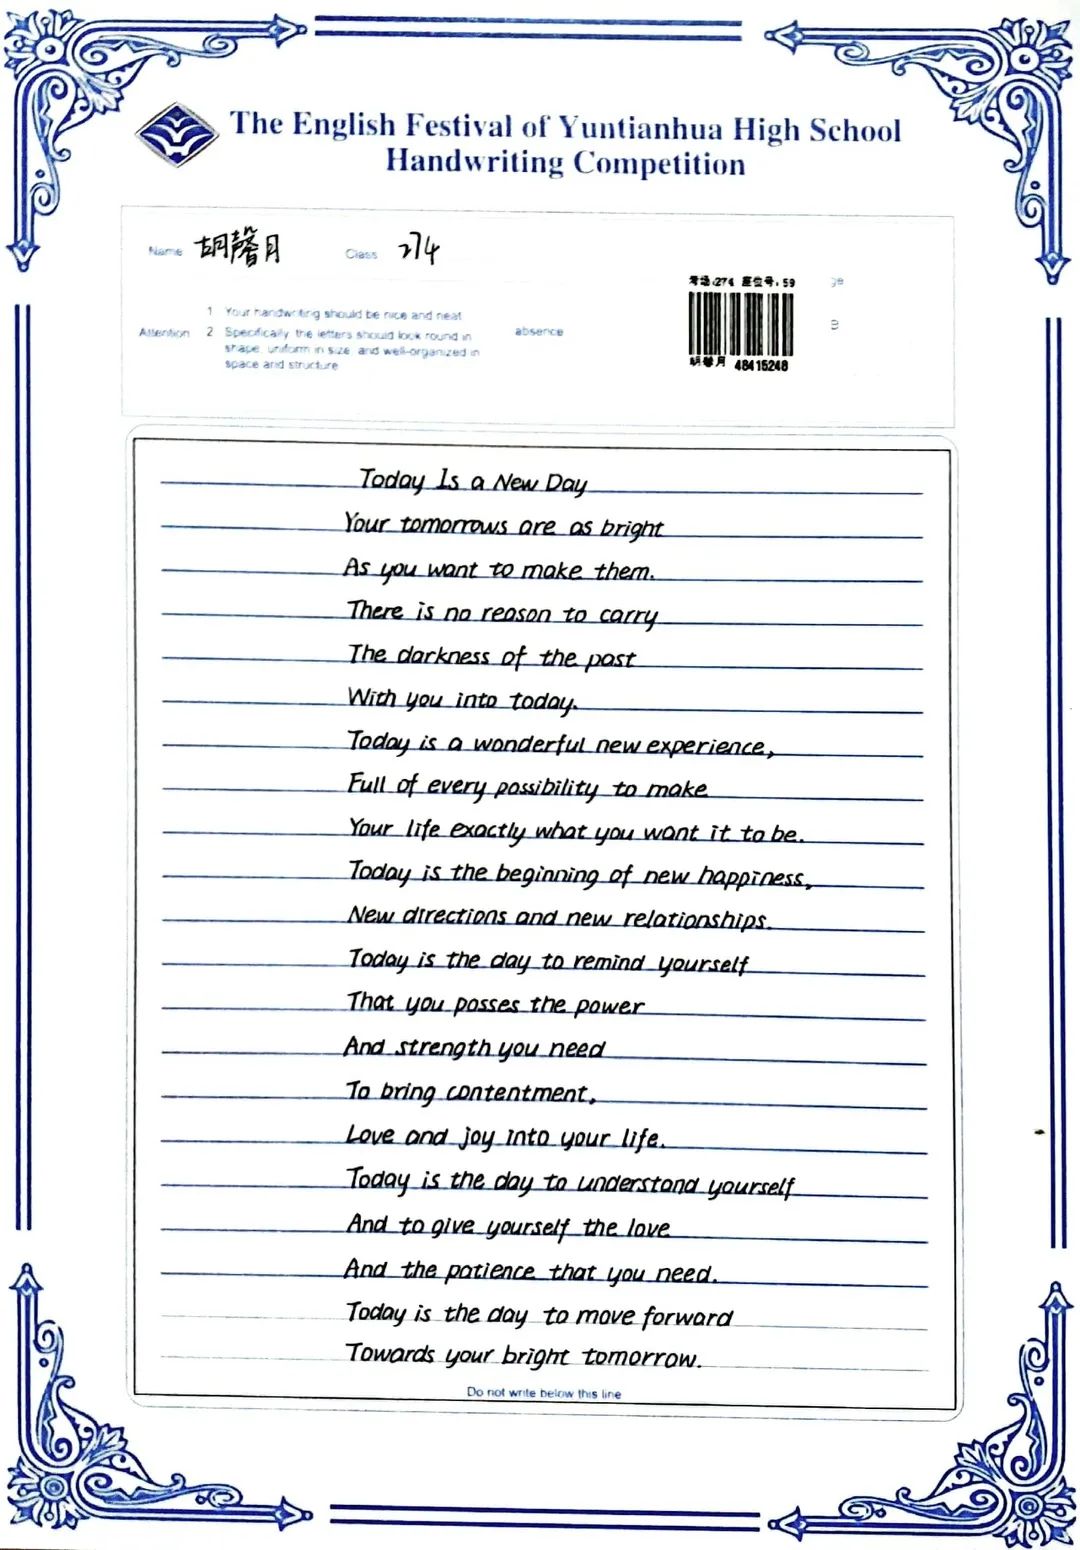 The English Festival of Yuntianhua High School
Handwriting Competition
Name 胡馨月 Class 274
考场:274 座位号:59
1 Your handwriting should be nice and neat
Attention 2 Specifically, the letters should look round in
shape, uniform in size and well-organized in
space and structure
absence
胡馨月 48415248
Today Is a New Day
Your tomorrows are as bright
As you want to make them.
There is no reason to carry
The darkness of the past
With you into today.
Today is a wonderful new experience,
Full of every possibility to make
Your life exactly what you want it to be.
Today is the beginning of new happiness,
New directions and new relationships.
Today is the day to remind yourself
That you posses the power
And strength you need
To bring contentment,
Love and joy into your life.
Today is the day to understand yourself
And to give yourself the love
And the patience that you need.
Today is the day to move forward
Towards your bright tomorrow.
Do not write below this line